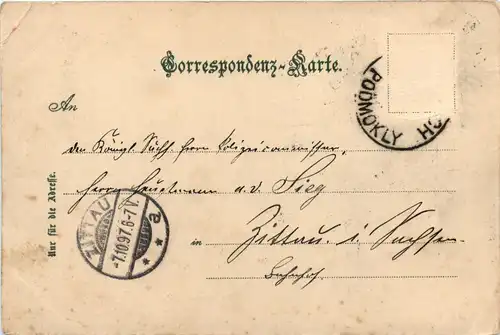 Correspondenz-Karte.
An
den Königl. Sächs. Herrn Polizeicommissar,
Herrn Hauptmann a. d. Sieg
in Zittau i/Sachsen
Bahnhof
Nur für die Adresse.
ZITTAU
-7.10.97.6-7V.
a
PODMOKLY